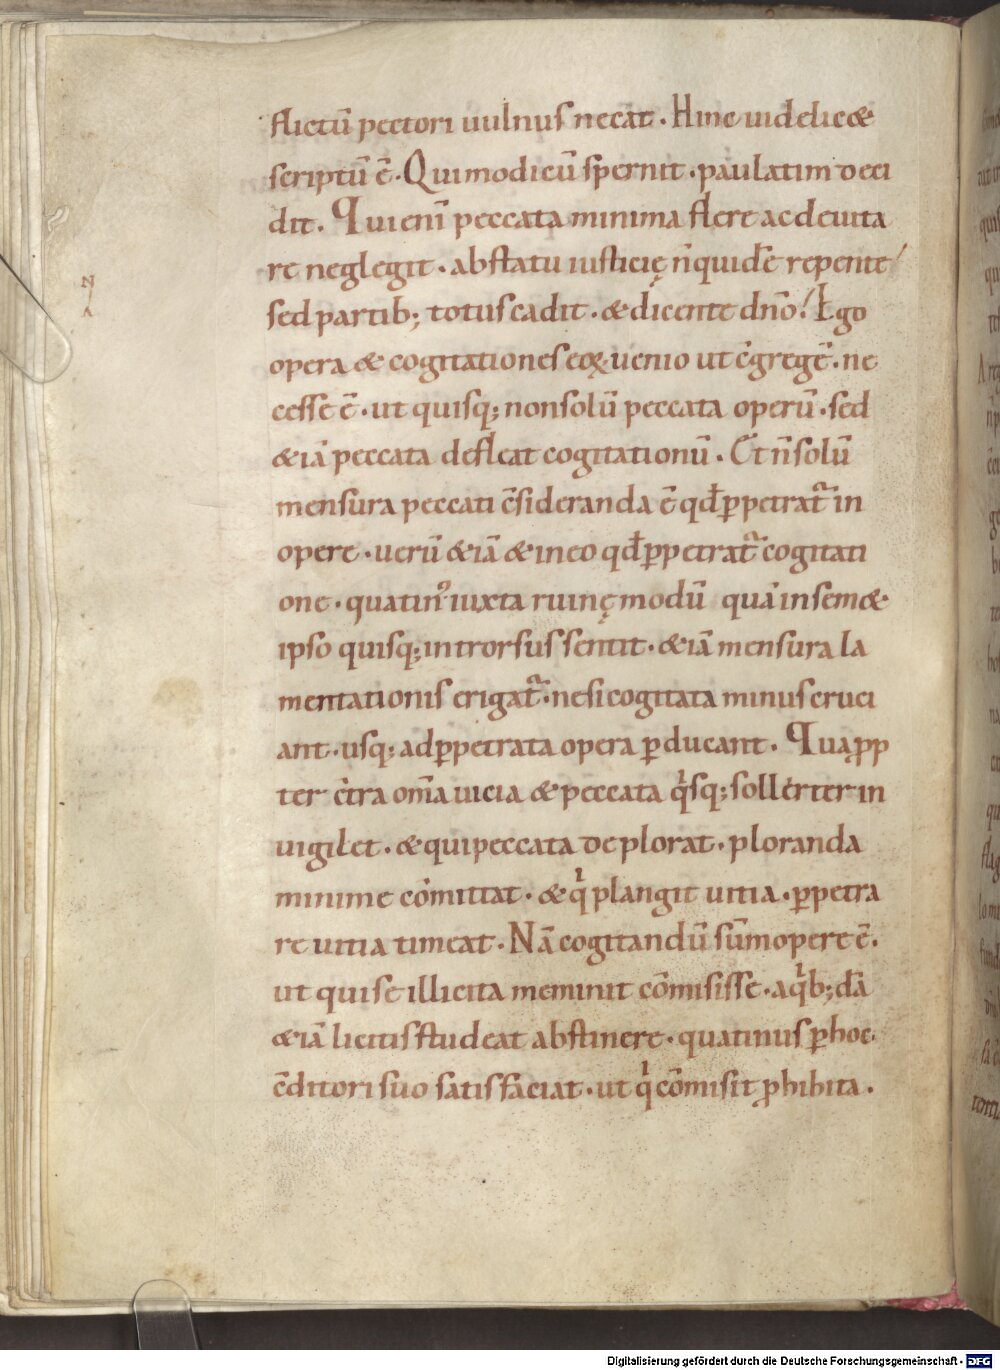 flictū pectori uulnus necat. Hinc uidelic&
scriptū ē. Qui modicū spernit. paulatim deci
dit. Qui enī peccata minima flere ac deuita
re neglegit. ab statu iusticię n̄ quidē repente
sed partib; totus cadit. & dicente dn̄o! Ego
opera & cogitationes eoꝝ uenio ut c̄gregē. ne
cesse ē. ut quisq; non solū peccata operū. sed
&iā peccata defleat cogitationū. Et n̄ solū
mensura peccati c̄sideranda ē qđ ꝑpetrat̄ in
opere. uerū &iā & in eo qđ ꝑpetrat̄ cogitati
one. quatin᾽ iuxta ruinę modū quā in sem&
ipso quisq; introrsus sentit. &iā mensura la
mentationis erigat̄. ne si cogitata minus cruci
ant. usq; ad ꝑpetrata opera ꝑducant. Quaꝓp
ter c̄tra om̄a uicia & peccata qͥsq; sollerter in
uigilet. & qui peccata deplorat. ploranda
minime cōmittat. & qͥ plangit uitia. ꝑpetra
re uitia timeat. Nā cogitandū sūmopere ē.
ut qui se illicita meminit cōmisisse. a qͥb; dā
&iā licitis studeat abstinere. quatinus ꝑ hoc
c̄ditori suo satisfaciat. ut qͥ cōmisit ꝓhibita.
Digitalisierung gefördert durch die Deutsche Forschungsgemeinschaft - DFG